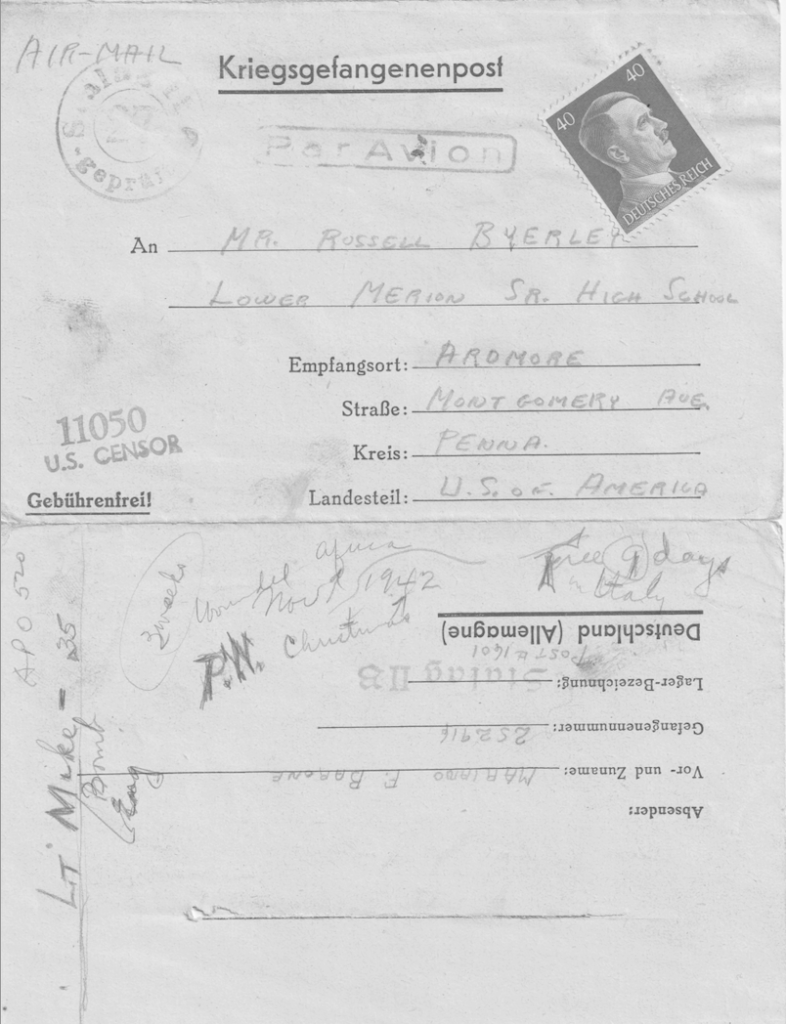 AIR-MAIL
Kriegsgefangenenpost
geprüft
25
Par Avion
40
40
DEUTSCHES REICH
An MR. RUSSELL BYERLEY
LOWER MERION SR. HIGH SCHOOL
Empfangsort: ARDMORE
Straße: MONTGOMERY AVE.
Kreis: PENNA.
Landesteil: U.S. OF AMERICA
11050
U.S. CENSOR
Gebührenfrei!
APO 520
Lt Mike - 35
Bomb
3 weeks
Wounded Africa
Nov 1942
Christmas
P.W.
Free 9 days
in Italy
Absender:
Vor- und Zuname: MARIANO F. BARONE
Gefangenennummer: 252916
Lager-Bezeichnung: Stalag IIB
Deutschland (Allemagne)